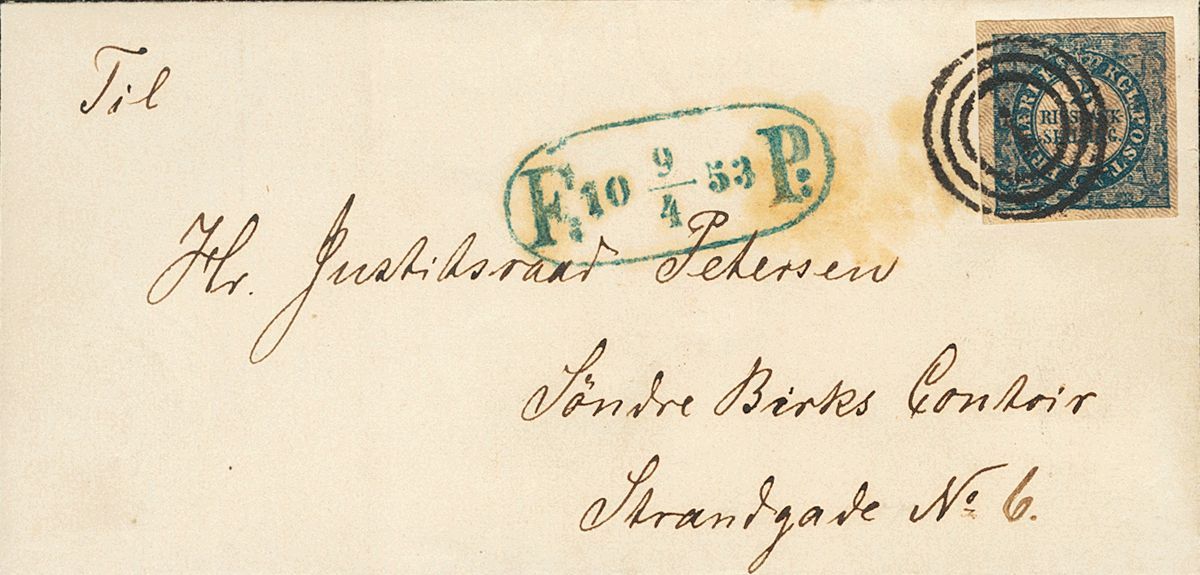 Til
F: 10 9/4 53 P:
Hr. Justitsraad Petersen
Söndre Birks Contoir
Strandgade No 6.
KGL POST